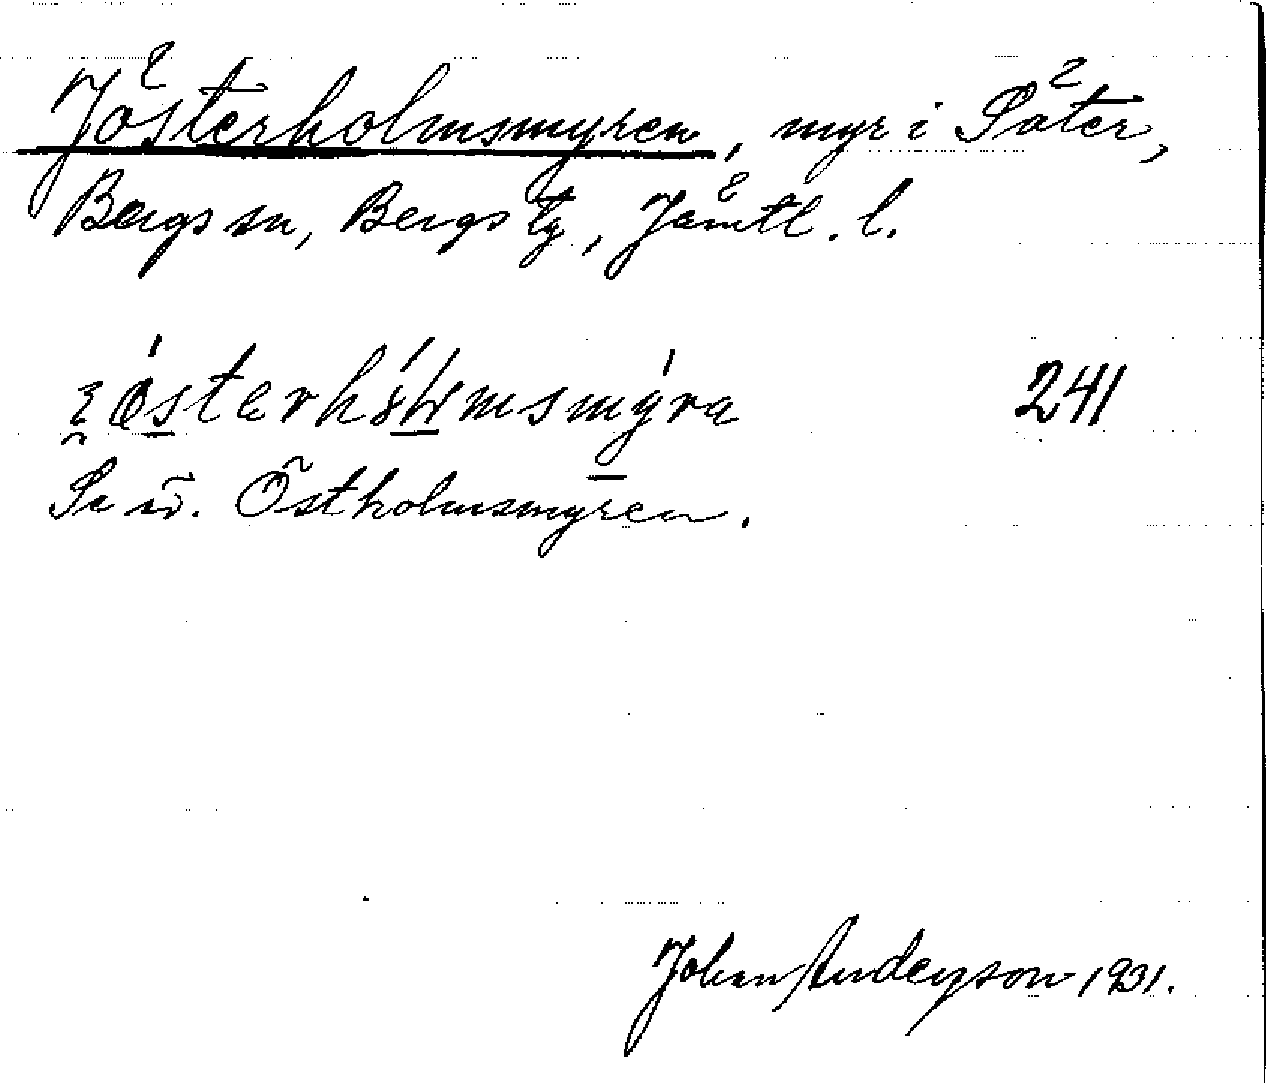 Jösterholmsmyren, myr i Såter,
Bergs sn, Bergs tg, Jämtl. l.
241
Se äv. Östholmsmyren.
Johan Anderson 1931.